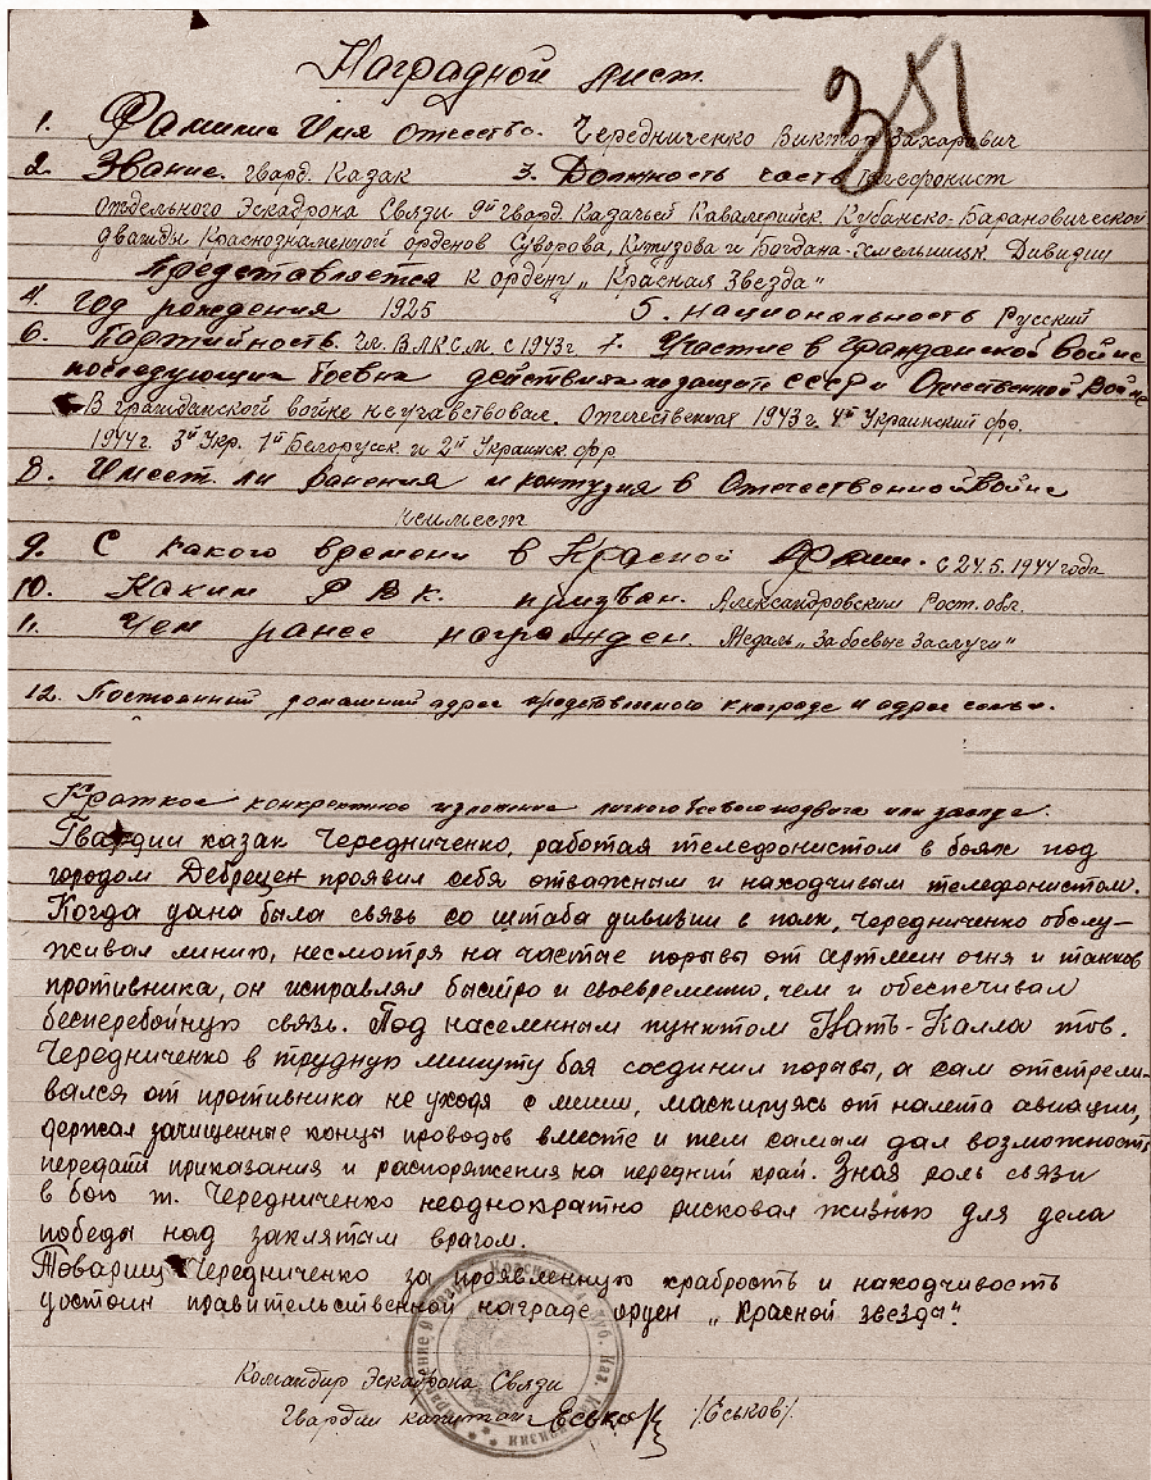 Наградной лист.
351
1. Фамилие Имя Отчество. Чередниченко Виктор Захарович
2. Звание. гвард. Казак 3. Должность часть телефонист
отдельного Эскадрона Связи 9й гвард. Казачьей Кавалерийск. Кубанско-Барановической
дважды Краснознаменной орденов Суворова, Кутузова и Богдана-Хмельницк. Дивизии
Представляется к ордену „Красная Звезда"
4. Год рождения 1925 5. Национальность Русский
6. Партийность. Чл. ВЛКСМ. с 1943г. 7. Участие в гражданской войне
последующих боевых действиях по защите СССР и Отечественной войне
В гражданской войне не учавствовал. Отечественная 1943г. 4й Украинский фр.
1944г. 3й Укр. 1й Белорусск. и 2й Украинск. фр.
8. Имеет ли ранения и контузия в Отечественной войне
неимеет
9. С какого времени в Красной Армии. с 24.5.1944 года
10. Каким РВК. призван. Александровским Рост. обл.
11. Чем ранее награжден. Медаль „За боевые Заслуги"
12. Постоянный домашний адрес представленого к награде и адрес семьи.
Краткое конкретное изложение личного боевого подвига или заслуг.
Гвардии казак Чередниченко, работая телефонистом в боях под
городом Дебрецен проявил себя отважным и находчивым телефонистом.
Когда дана была связь со штаба дивизии в полк, Чередниченко обслу-
живал линию, несмотря на частые порывы от артмин огня и танков
противника, он исправлял быстро и своевременно, чем и обеспечивал
бесперебойную связь. Под населенным пунктом Нать-Калла тов.
Чередниченко в трудную минуту боя соединил порывы, а сам отстрели-
вался от противника не уходя с линии, маскируясь от налета авиации,
держал зачищенные концы проводов вместе и тем самым дал возможность
передати приказания и распоряжения на передний край. Зная роль связи
в бою т. Чередниченко неоднократно рисковал жизнью для дела
победы над заклятым врагом.
Товарищ Чередниченко за проявленную храбрость и находчивость
достоин правительственной награде орден „Красной звезда".
Командир Эскадрона Связи
Гвардии капитан Еськов /Еськов/.